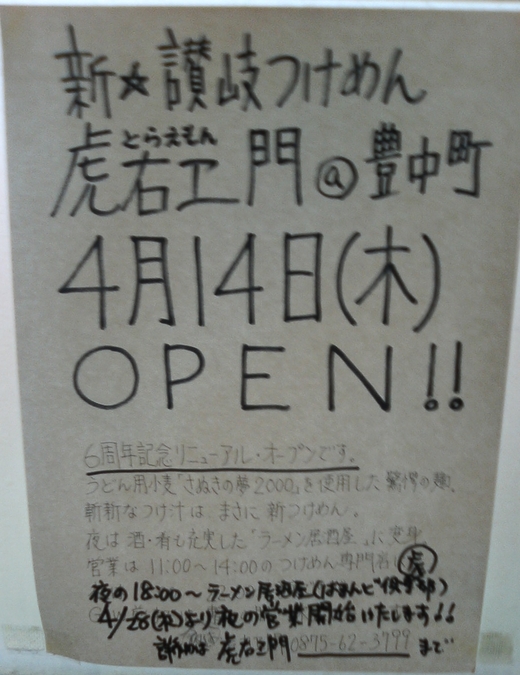 新☆讃岐つけめん
とらえもん
虎右ヱ門@豊中町
4月14日(木)
OPEN!!
6周年記念リニューアル・オープンです。
うどん用小麦「さぬきの夢2000」を使用した驚愕の麺、
斬新なつけ汁は まさに 新つけめん。
夜は 酒・肴も充実した「ラーメン居酒屋」に変身
営業は 11:00~14:00のつけめん専門店 虎
夜の18:00~ラーメン居酒屋
4/28(木)より 夜の営業開始いたします!!
詳細は 虎右ヱ門 0875-62-3799 まで